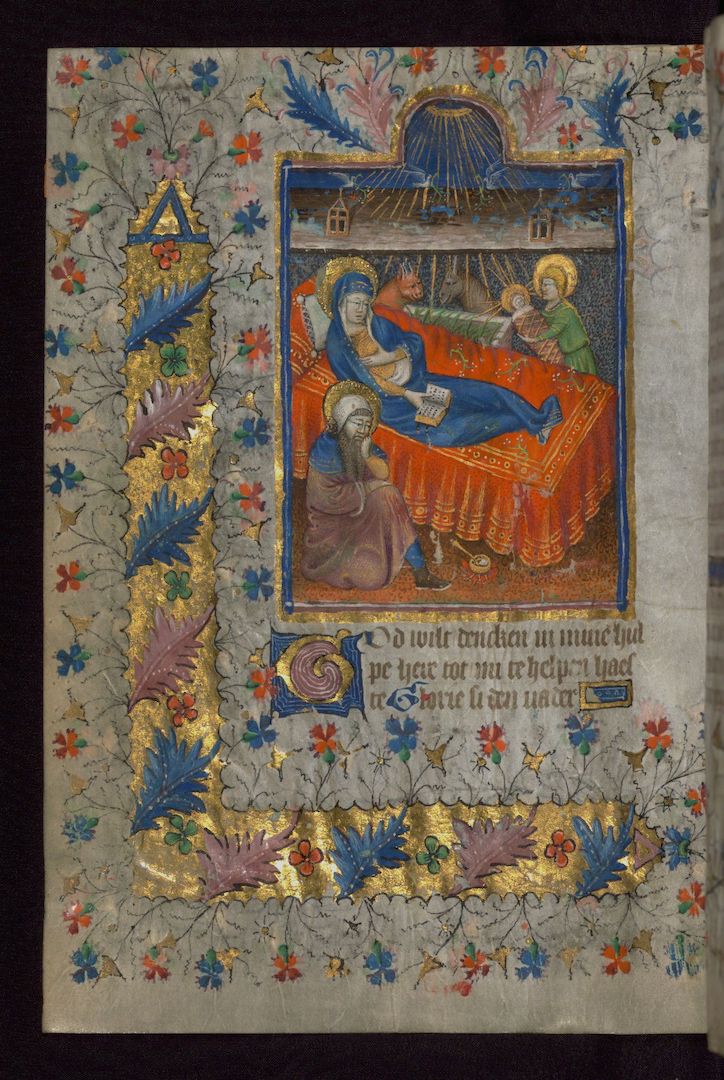 God wilt dencken in mine hul
pe here tot mi te helpen haes
te Glorie si den uader